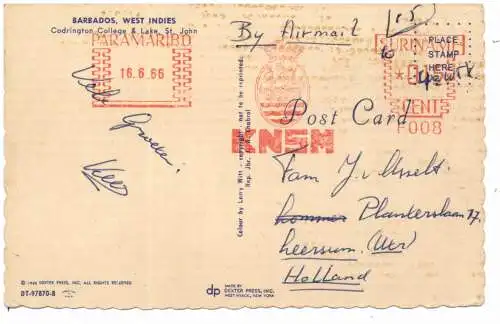 BARBADOS, WEST INDIES
Codrington College & Lake, St. John
PARAMARIBO
16.6.66
By Airmail
SURINAME
CENT
F008
PLACE
STAMP
HERE
Post Card
KNSM
Vele
Groeten,
Kees
Colour by Larry Witt - copyright, not to be reproduced.
Fam J. v. Asselt.
Planterslaan 17.
Leersum. (Utr)
Holland
© 1966 DEXTER PRESS, INC. ALL RIGHTS RESERVED
DT-97870-B
dp
MADE BY
DEXTER PRESS, INC.
WEST NYACK, NEW YORK